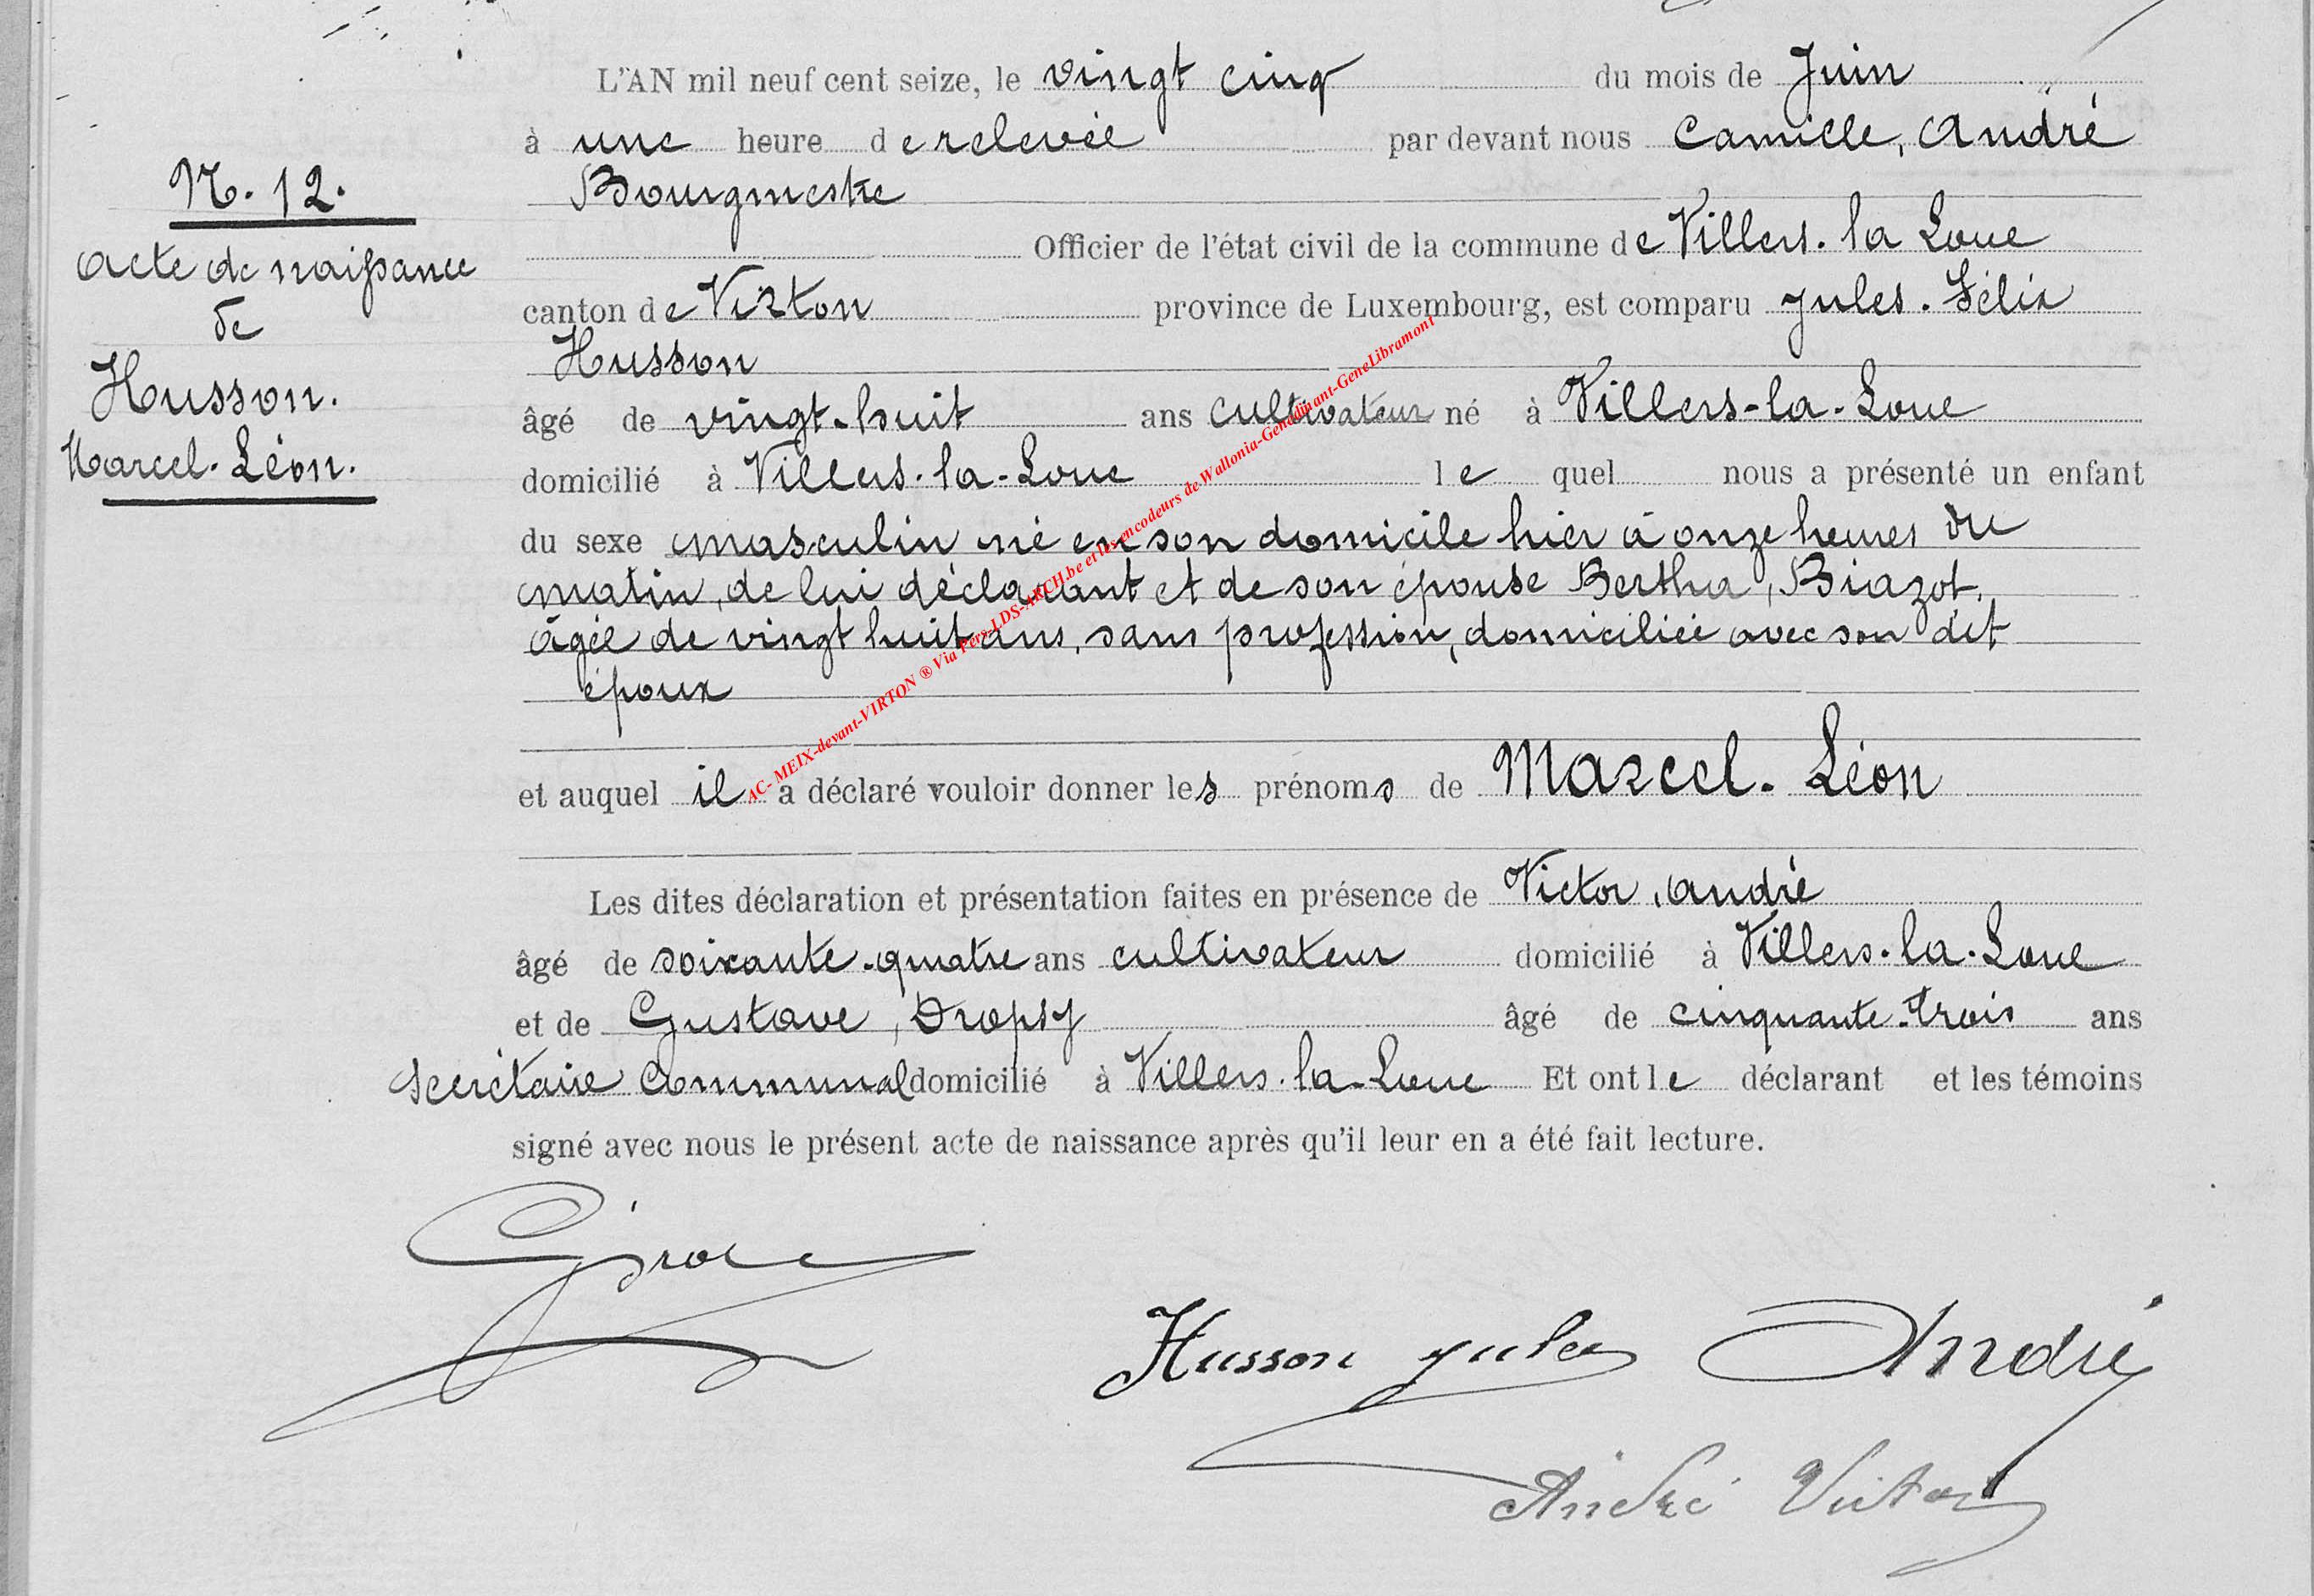 L'AN mil neuf cent seize, le vingt cinq du mois de Juin
à une heure de relevée par devant nous Camille, André
Bourgmestre
Officier de l'état civil de la commune de Villers-la Loue
canton de Virton province de Luxembourg, est comparu Jules-Félix
Husson
âgé de vingt-huit ans cultivateur né à Villers-la-Loue
domicilié à Villers-la-Loue le quel nous a présenté un enfant
du sexe masculin né en son domicile hier à onze heures du
matin, de lui déclarant et de son épouse Bertha, Biazot,
âgée de vingt huit ans, sans profession, domiciliée avec son dit
époux
et auquel il a déclaré vouloir donner les prénoms de Marcel-Léon
Les dites déclaration et présentation faites en présence de Victor, André
âgé de soixante-quatre ans cultivateur domicilié à Villers-la-Loue
et de Gustave, Dropsy âgé de cinquante-trois ans
secrétaire communal domicilié à Villers-la-Loue Et ont le déclarant et les témoins
signé avec nous le présent acte de naissance après qu'il leur en a été fait lecture.
N. 12.
Acte de naissance
de
Husson.
Marcel-Léon.
AC- MEIX-devant-VIRTON ® Via Pers-LDS-ARCH.be et les encodeurs de Wallonia-Genedinant-GeneLibramont
Husson Jules André
André Victor